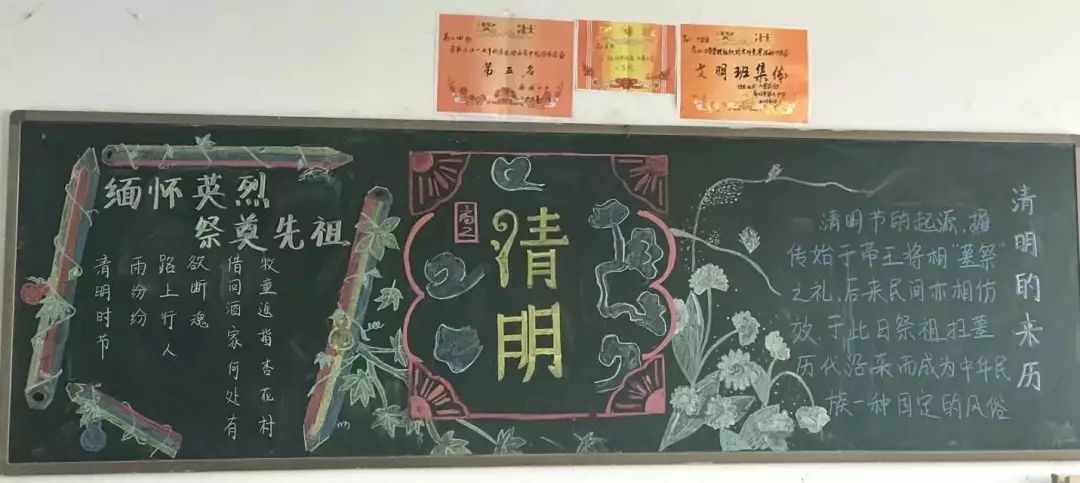 奖状
第五名
奖状
文明班集体
缅怀英烈
祭奠先祖
清明时节
雨纷纷
路上行人
欲断魂
借问酒家何处有
牧童遥指杏花村
清明
清明的来历
清明节的起源，据
传始于帝王将相“墓祭”
之礼，后来民间亦相仿
效，于此日祭祖扫墓
历代沿袭而成为中华民
族一种固定的风俗